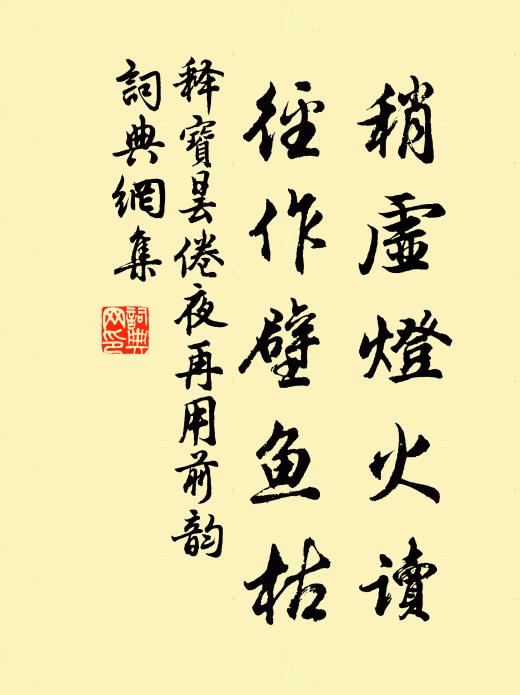 稍虛燈火讀
徑作壁魚枯
释寶曇倦夜再用前韵
詞典網集
詞典网印